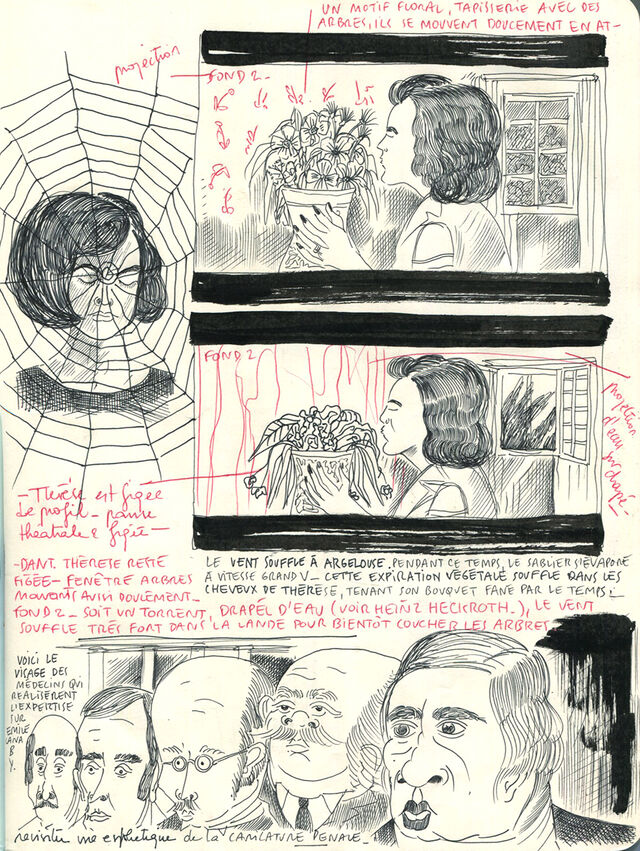 UN MOTIF FLORAL, TAPISSERIE AVEC DES
ARBRES, ILS SE MOUVENT DOUCEMENT EN AT-
projection
FOND 2_
FOND 2
projection
d'eau
- Thérèse est figée
de profil_ pause
théâtrale & figée -
- DANT. THÉRÈSE RESTE
FIGÉE - FENÊTRE ARBRES
MOUVANTS AUSSI DOULEMENT_
FOND 2_ SOIT UN TORRENT, DRAPÉL D'EAU (VOIR HEINZ HECKROTH_), LE VENT
SOUFFLE TRÉS FORT DANS LA LANDE POUR BIENTÔT COUCHER LES ARBRES
LE VENT SOUFFLE À ARGELOUSE. PENDANT CE TEMPS, LE SABLIER S'ÉVAPORE
À VITESSE GRAND V_ CETTE EXPIRATION VÉGÉTALE SOUFFLE DANS LES
CHEVEUX DE THÉRÈSE, TENANT SON BOUQUET FANÉ PAR LE TEMPS_
VOICI LE
VISAGE DES
MÉDECINS QUI
RÉALISÈRENT
L'EXPERTISE
SUR
EMILE
ANA
B
Y.
revisiter une esthétique de la CARICATURE PENALE_